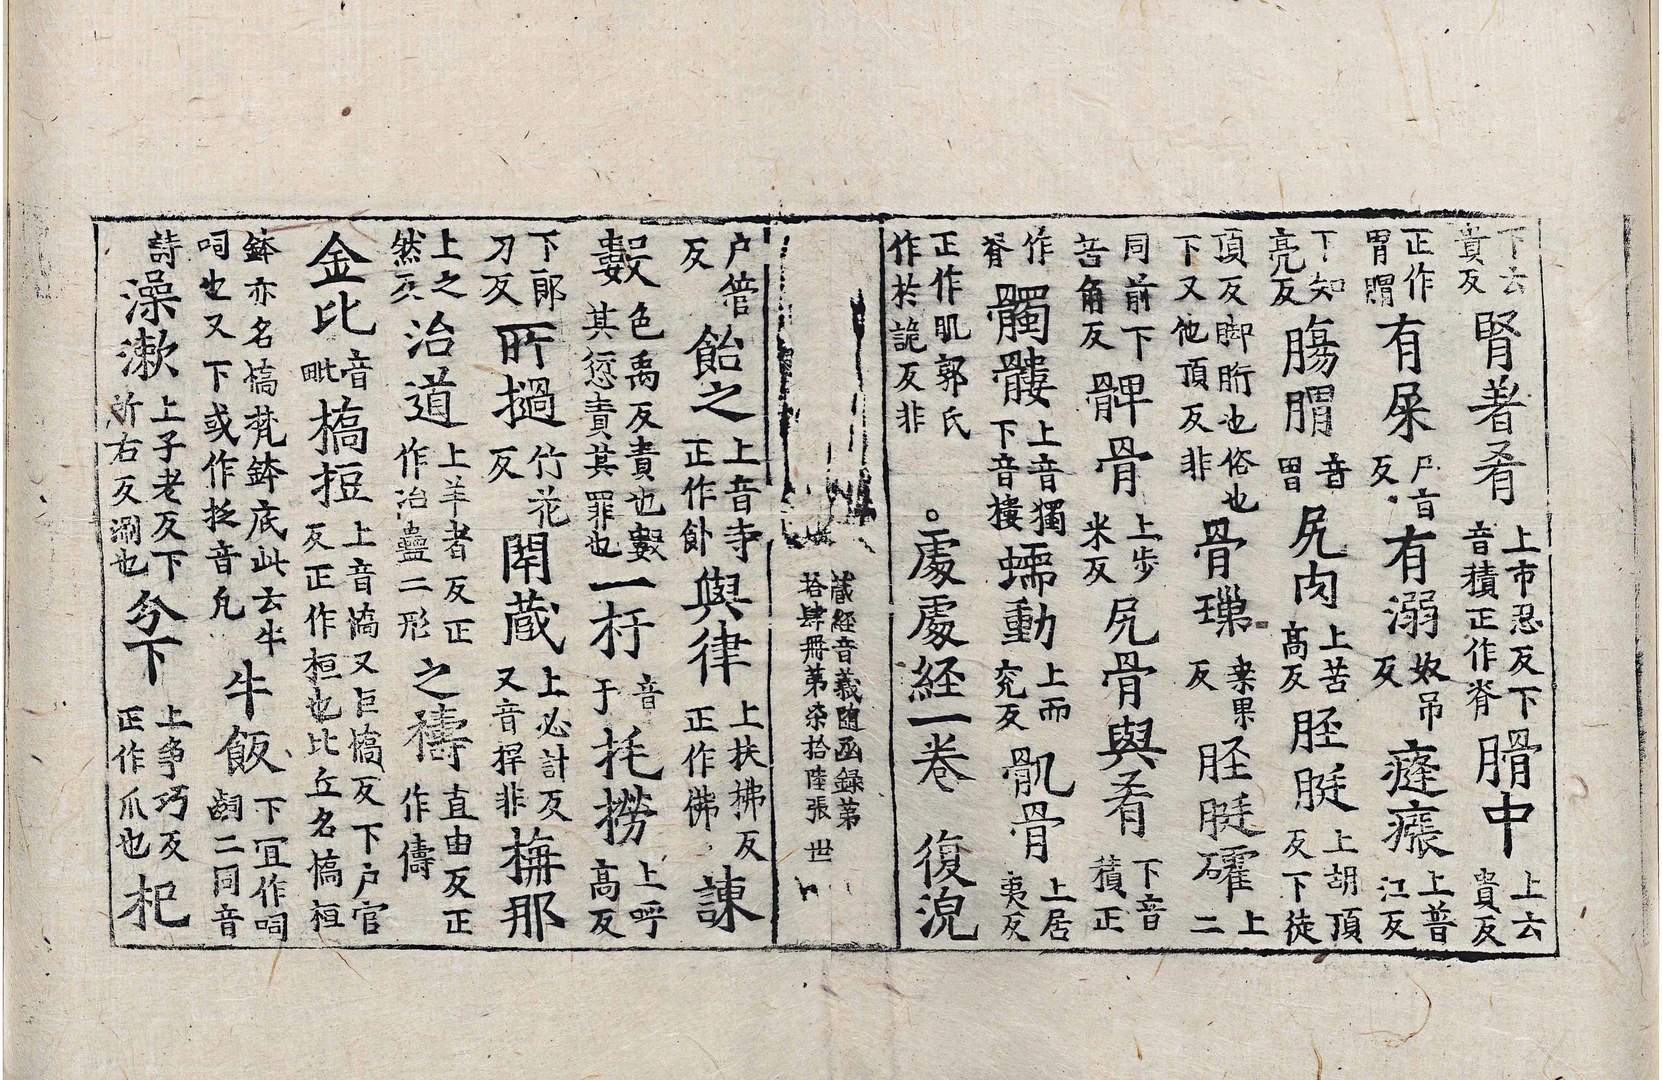 下云貴反腎著肴上市忍反下音積正作脊䐣中上云貴反
正作胃䐣有屎尸旨反有溺奴吊反瘂瘬上普江反
丁知亮反腸䐣音胃尻肉上苦高反胵脡上胡頂反下徒
頂反脚胻也俗也下又他頂反非骨璅桒果反胵脡礭上二
同前下苦角反髀骨上步米反尻骨與肴下音積正
作脊髑髏上音獨下音樓蠕動上而兖反骩骨上居夷反
正作肌郭氏作於詭反非。處處経一卷 復涗
藏経音義随函録第拾肆冊第柒拾陸張 世
户管反飴之上音寺正作飤與律上扶拂反正作佛諫
數色禹反責也數其愆責其罪也一杅音于扥撈上呼高反
下郎刀反所撾竹花反閈蔵上必計反又音捍非橅那
上之然反治道上羊者反正作冶蠱二形之禱直由反正作儔
金比音毗槗梪上音憍又巨憍反下户官反正作桓也比丘名槗桓
鉢亦名槗梵鉢底此云牛呞也又下或作抳音凢牛飯下冝作呞齝二同音
詩澡漱上子老反下所右反涮也叅下上爭巧反正作爪也杞